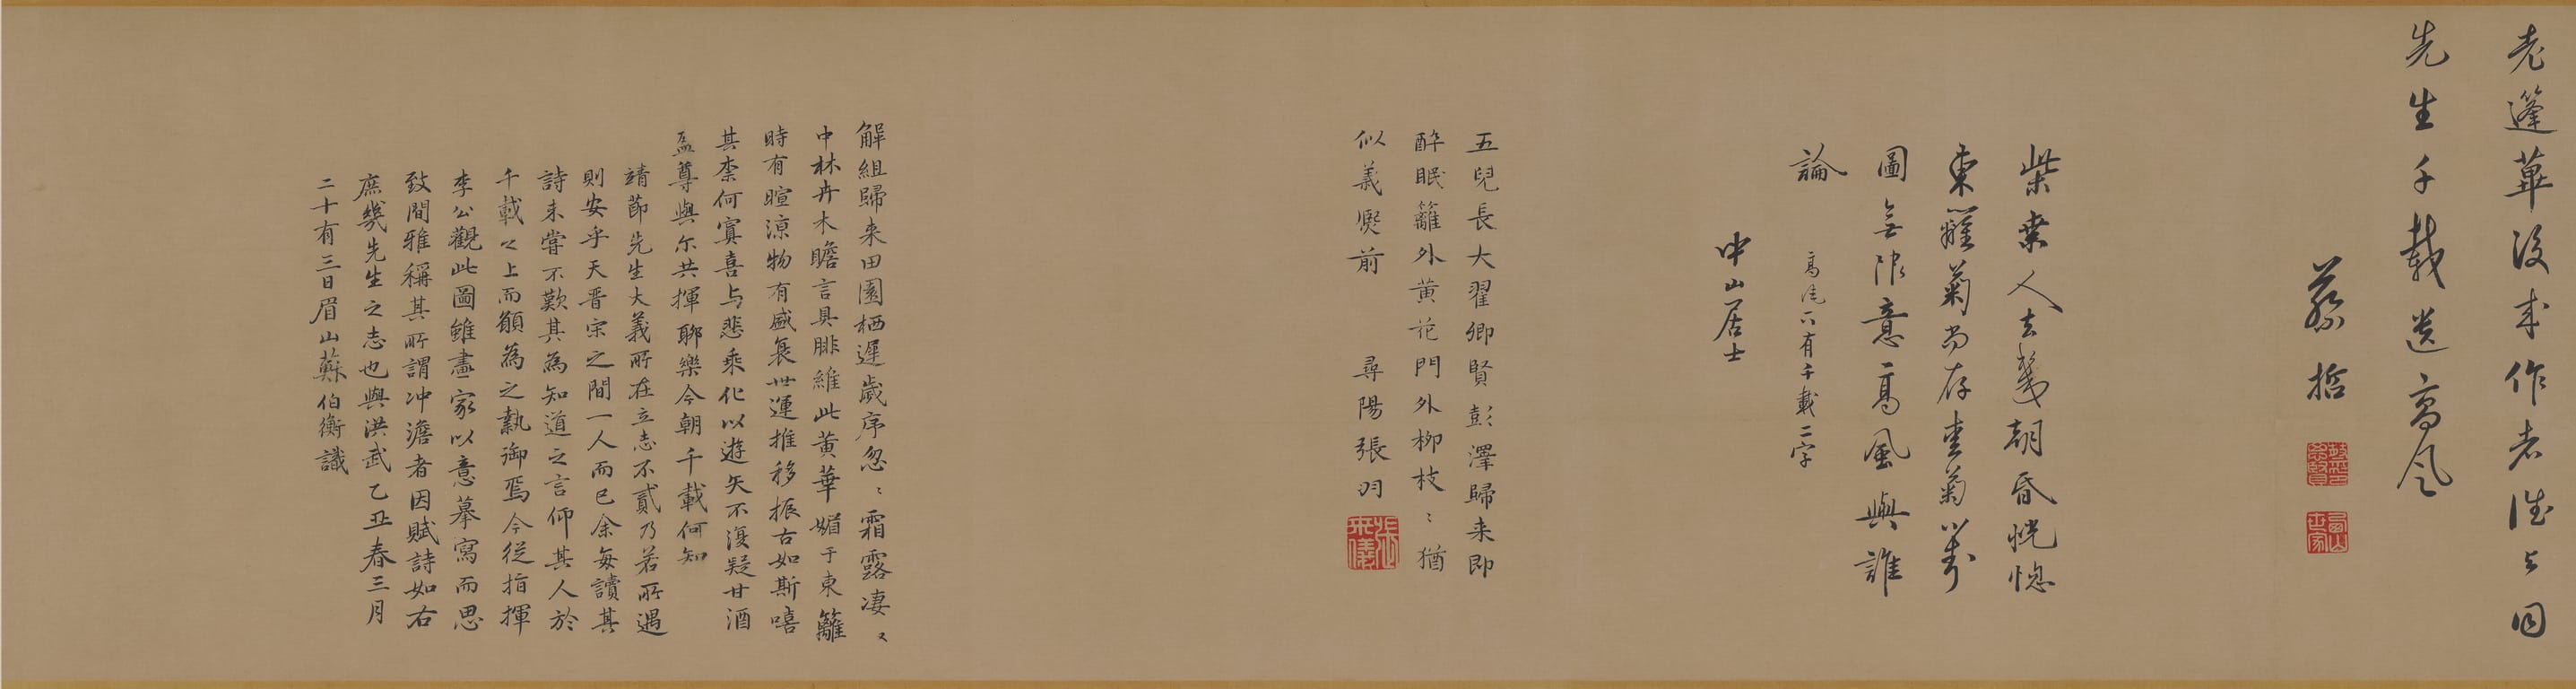 老蓬蓽後來作者誰與同
先生千載遺高風
蔡哲
柴桑人去幾朝昏恍惚
東籬菊尚存畫菊畫
圖無限意高風與誰
論
高風下有千載二字
中山居士
五兒長大翟卿賢彭澤歸來即
醉眠籬外黃花門外柳枝〻猶
似義熙前 尋陽張羽
張來儀
解組歸來田園栖遲歲序忽〻霜露凄〻
中林卉木瞻言具腓維此黃華媚于東籬
時有暄涼物有盛衰世運推移振古如斯嘻
其柰何寘喜与悲乘化以遊矢不復疑甘酒
盈尊與尔共揮聊樂今朝千載何知
靖節先生大義所在立志不貳乃若所遇
則安乎天晋宋之間一人而已余每讀其
詩未嘗不歎其為知道之言仰其人於
千載之上而願為之執御焉今從指揮
李公觀此圖雖畫家以意摹寫而思
致閒雅稱其所謂冲澹者因賦詩如右
庶幾先生之志也與洪武乙丑春三月
二十有三日眉山蘇伯衡識